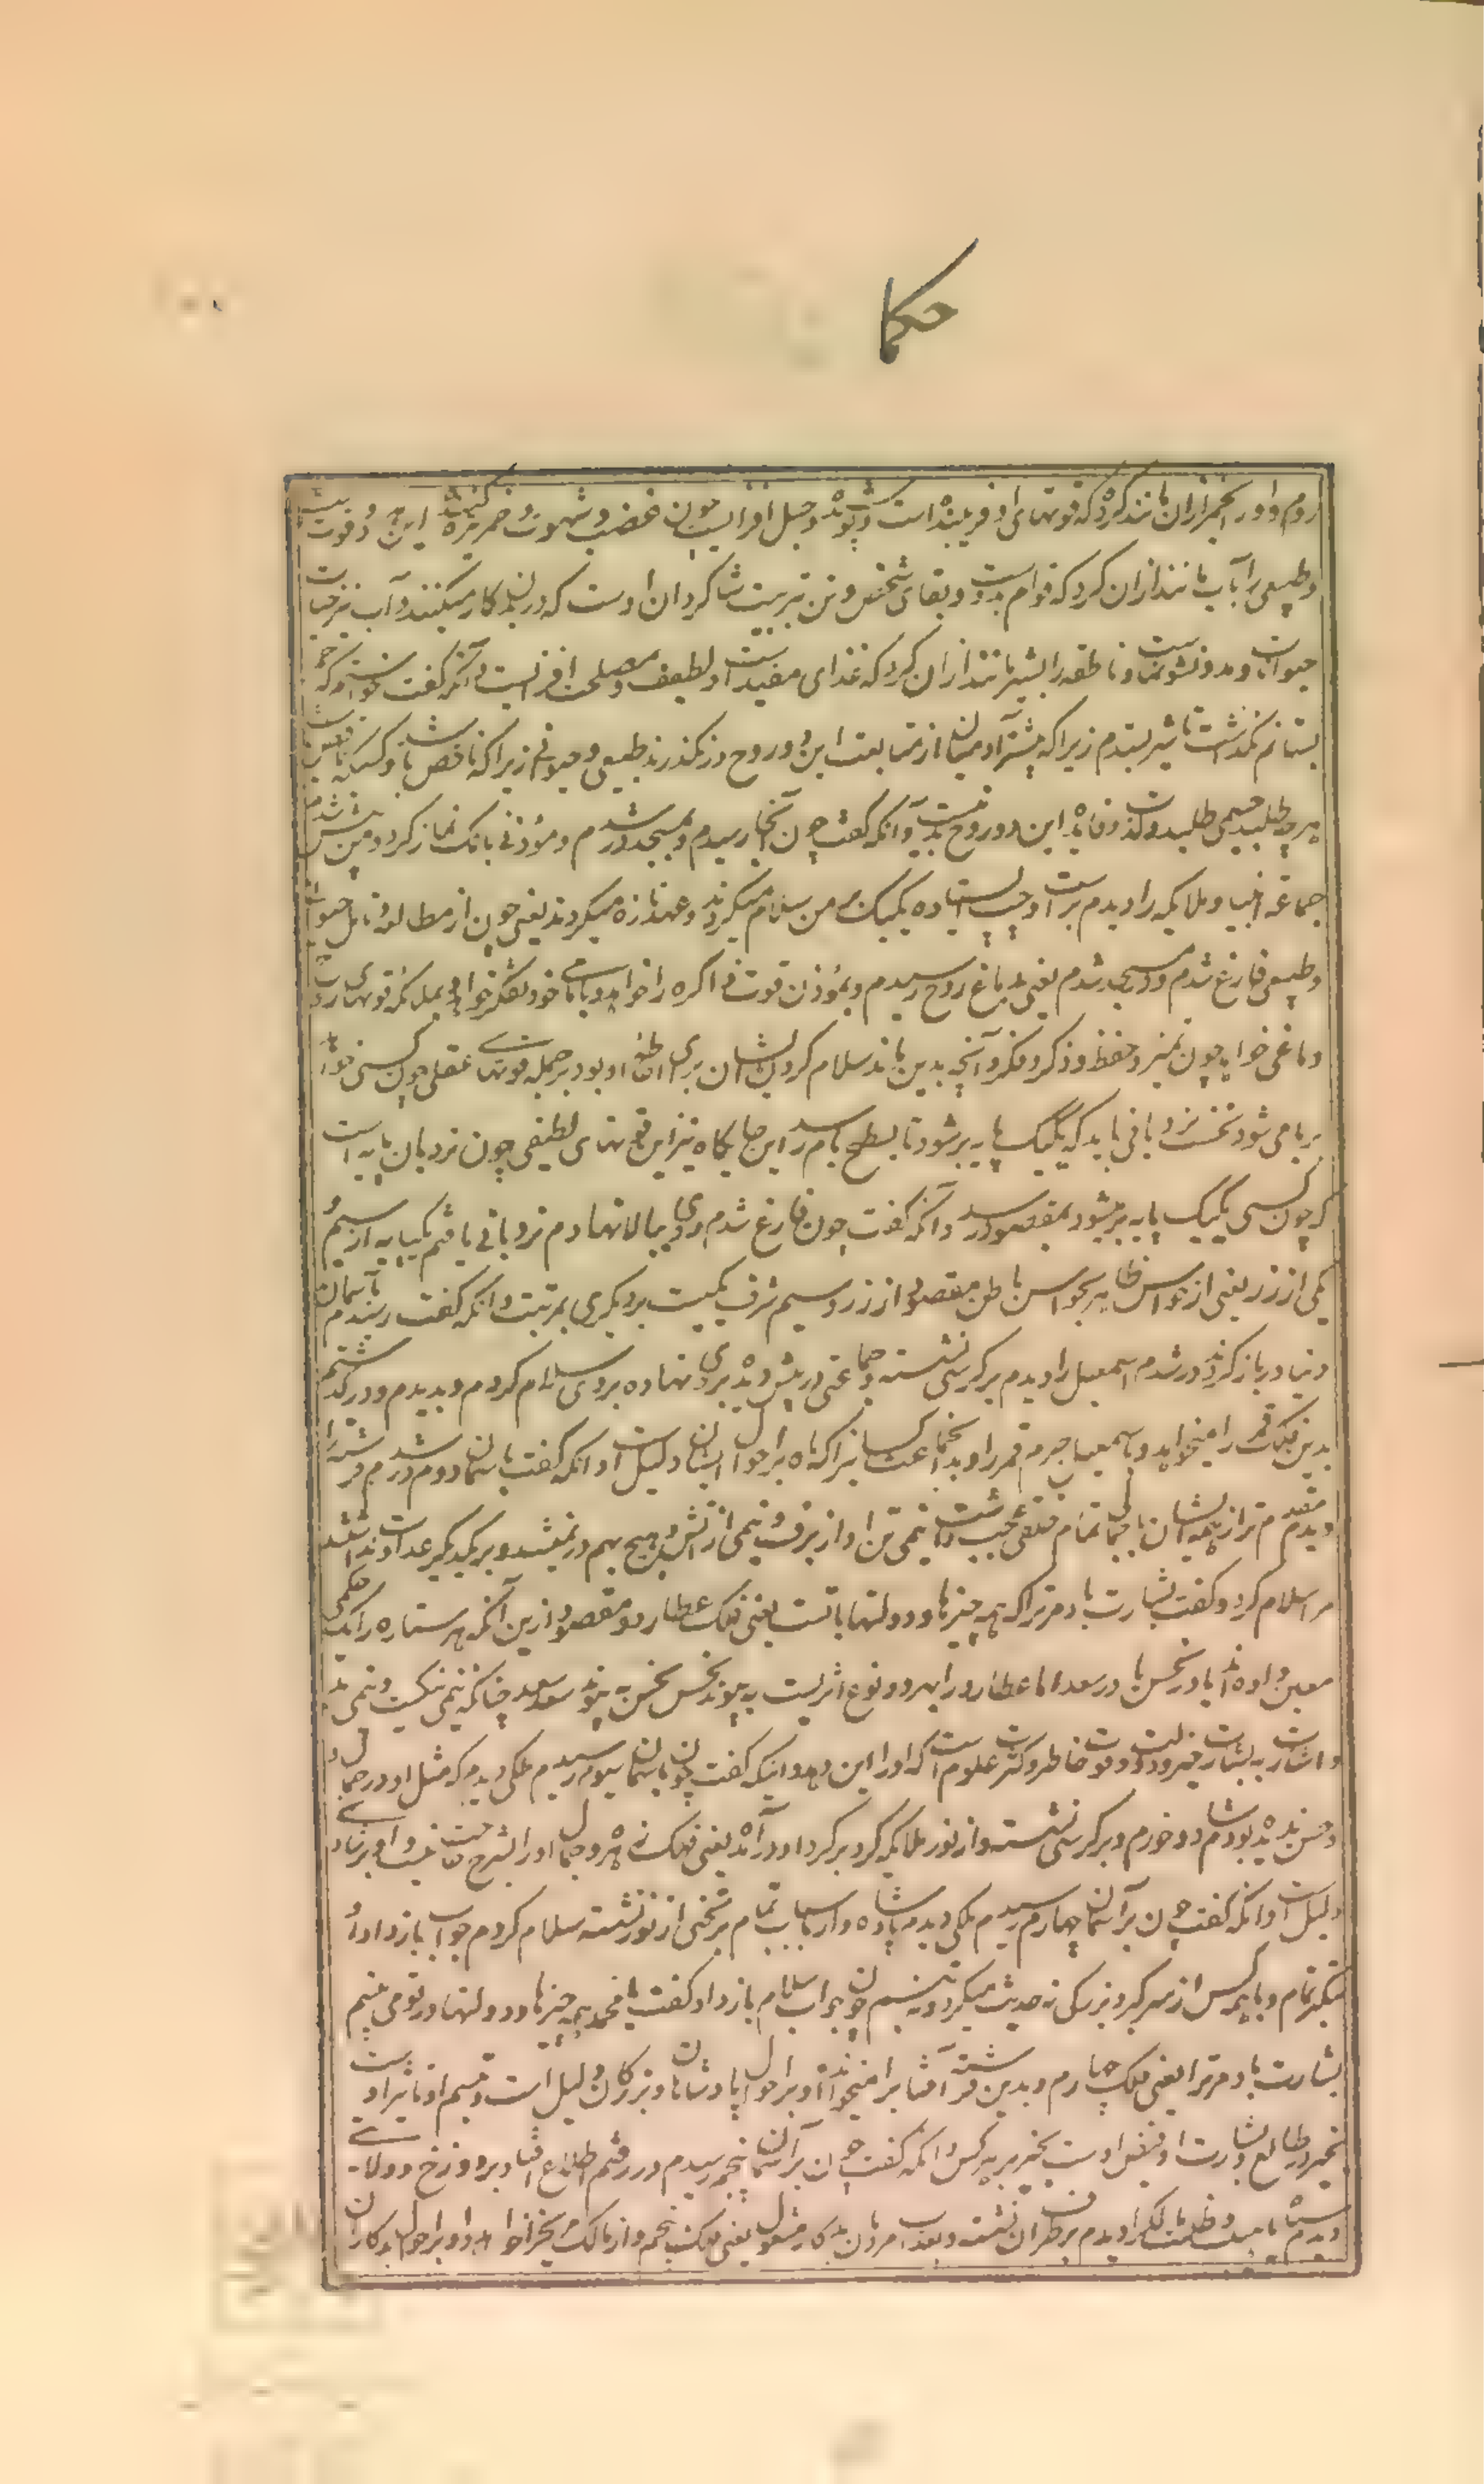 حکما
روم او را بخمر ازان مانند کرد که قوتهای او فریبنده است و جهل افزاست چون غضب و شهوت و خمر تیز کننده این دو قوتست
و طبیعی را بآب مانند ازان کرد که قوام بدوست و بقای شخص و تن بتربیت شاگردان اوست که در بدن کار میکنند و آب نیز حیات
حیوانات و مدد نشو و نماست و ناطقه را بشیر مانند ازان کرد که غذای مفید است و لطیف و مصلحت افزاست و آنکه گفت خواستم که خمر
بستانم نگذاشت تا شیر بستدم زیرا که بیشتر آدمیان از متابعت این دو روح درنگذرند طبیعی و حیوانی زیرا که ناقص باشند و کسیکه ناقص است
هر چه طلبد جسمی طلبد و لذت و فایده این دو روح بدنیست و آنکه گفت چون آنجا رسیدم و بمسجد در شدم و مؤذن بانگ نماز کرد و من پیش شدم
جماعت انبیا و ملایکه را دیدم بر راست و چپ ایستاده یکیک بر من سلام میکردند و عهد تازه میکردند یعنی چون از مطالعه و تامل حیوانی
و طبیعی فارغ شدم و در مسجد شدم یعنی بدماغ روح رسیدم و بمؤذن قوت ذاکره را خواهد و بامامی خود تفکر خواهد و بملایکه قوتهای ارواح
دماغی خواهد چون تمیز و حفظ و ذکر و فکر و آنچه بدین ماند سلام کردن ایشان بر وی احاطه او بود بر جمله قوتهای عقلی چون کسی خواهد
بر بامی شود نخست نردبانی باید که یکیک پایه بر شود تا بسطح بام رسد این جایگاه نیز این قوتهای لطیفی چون نردبان پایه است
که چون کسی یکیک پایه بر میشود بمقصود رسد و آنکه گفت چون فارغ شدم روی ببالا نهادم نردبانی یافتم یکپایه از سیم و
یکی از زر یعنی از حواس ظاهر بحواس باطن مقصود از زر و سیم شرف یکیست بر دیگری بمرتبت و آنکه گفت رسیدم بآسمان
دنیا در باز کردند در شدم اسمعیل را دیدم بر کرسی نشسته و جماعتی در پیش دیده بر وی نهاده بر وی سلام کردم و بدیدم و درگذشتم
بدین فلک قمر را میخواهد و باسمعیل جرم قمر را و بدان جماعت کسانیرا که ماه بر احوال ایشان دلیل است و آنکه گفت بآسمان دوم در شدم فرشته‌ای را
دیدم مقدم‌تر از همه ایشان با جمال تمام خلقی عجیب داشت نیمی تن او از برف و نیمی از آتش و هیچ بهم در نمیشد و بر یکدیگر عداوت نداشتند
مرا سلام کرد و گفت بشارت باد مر ترا که همه چیزها و دولتها با تست یعنی فلک عطارد و مقصود ازین آنکه هر ستاره را یک حکمی
معین داده‌اند یا در نحس یا در سعد اما عطارد را بهر دو نوع اثریست بپیوند نحس نحس بپیوند سعد سعد چنانکه نیمی نیکست و نیمی بد
و اشارت به بشارت خیر و دولت قوت خاطر و کثرت علوم است که او را این دهد و اینکه گفت چون بآسمان سیوم رسیدم ملکی دیدم که مثل او در جمال و
حسن ندیده بودم شاد و خرم و بر کرسی نشسته از نور و ملایکه گرد بر گرد او درآمده یعنی فلک زهره و جمال او را بشرح حاجت نیست و او بر شادی
دلیل است و آنکه گفت چون بر آسمان چهارم رسیدم ملکی دیدم پادشاه‌وار با سیاست تمام بر تختی از نور نشسته سلام کردم جواب باز داد و از
تکبر تمام و با هیچکس از سر کبر و بزرگی نه حدیث میکرد و نه تبسم چون جواب سلام باز داد گفت یا محمد همه چیزها و دولتها در تو می بینم
بشارت باد مر ترا یعنی فلک چهارم و بدین فرشته آفتاب را میخواهد و او بر احوال پادشاهان و بزرگان دلیل است و تبسم او تاثیر او
بخیر در طالع و بشارت او فیض اوست بخیر بر هر کس و آنکه گفت چون بر آسمان پنجم رسیدم در رفتم اطلاع افتاد بر دوزخ و ولایتی
دیدم سیاه با هیبت و ظلمت مالک را دیدم بر طرف آن نشسته و بعذاب مردمان بدکار مشغول یعنی فلک پنجم و از مالک مریخ را خواهد و او بر احوال بدکاران